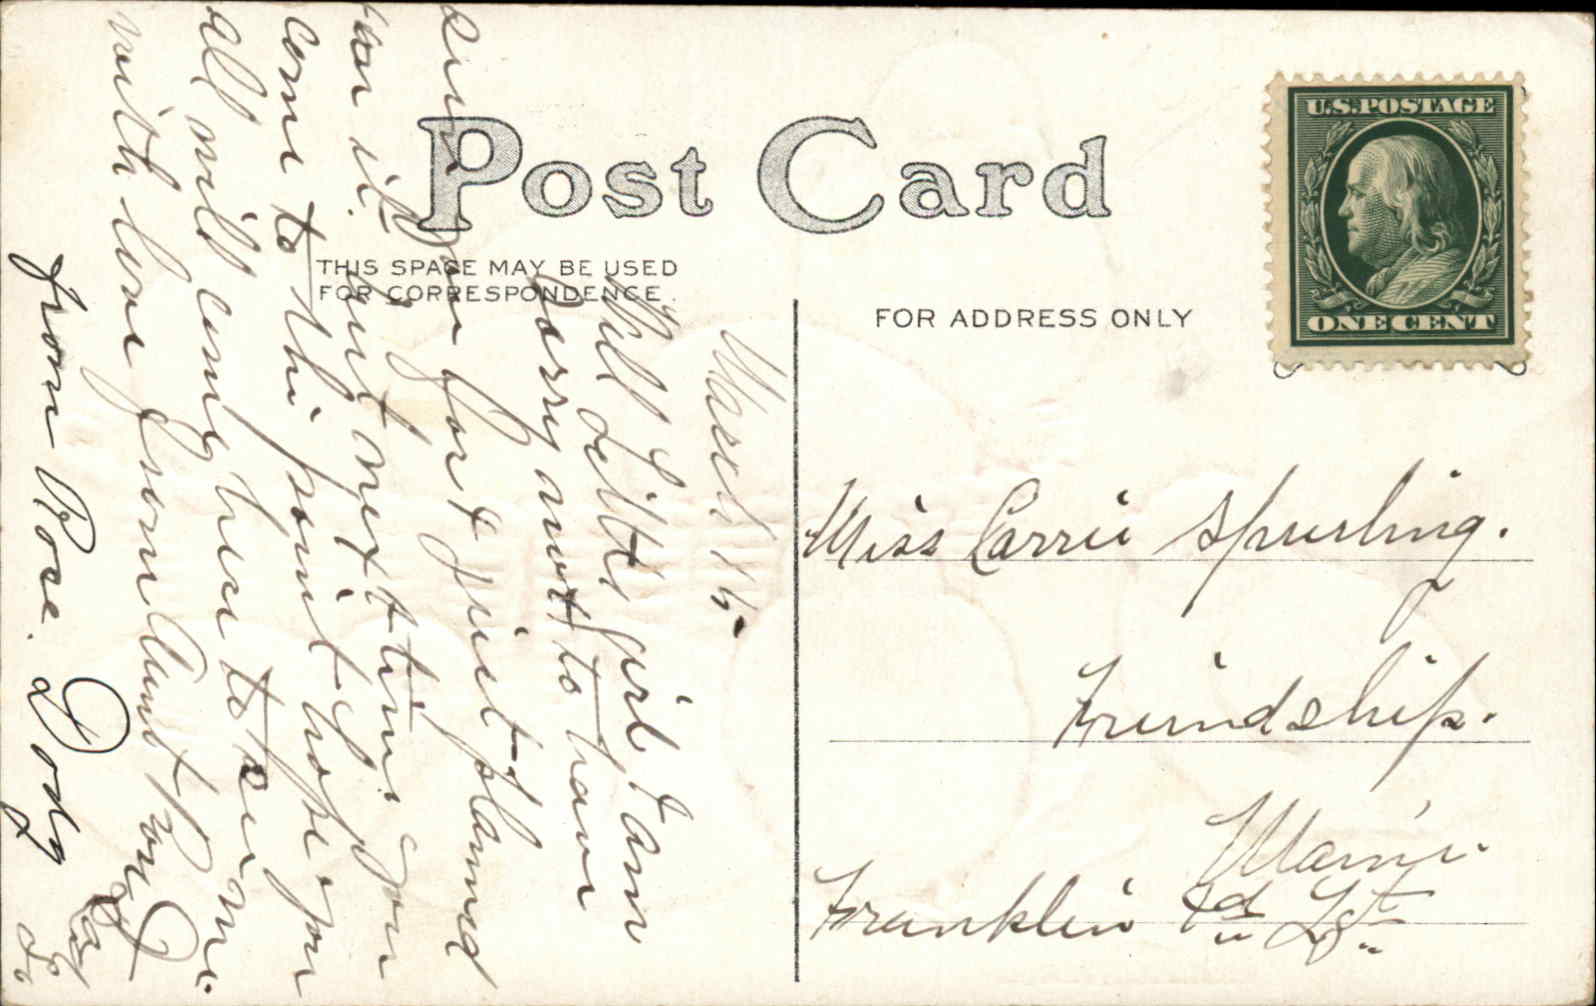 Post Card
THIS SPACE MAY BE USED
FOR CORRESPONDENCE.
FOR ADDRESS ONLY
U.S. POSTAGE
ONE CENT
March 15.
Will Little girl I am
sorry not to have
seen you for I just planed
on it. but next time you
come to the point hope you
all will come here to see me.
with love from Aunt
from Rose. Dody
Miss Carrie Spurling.
Friendship.
Maine.
Franklin Id Lgt